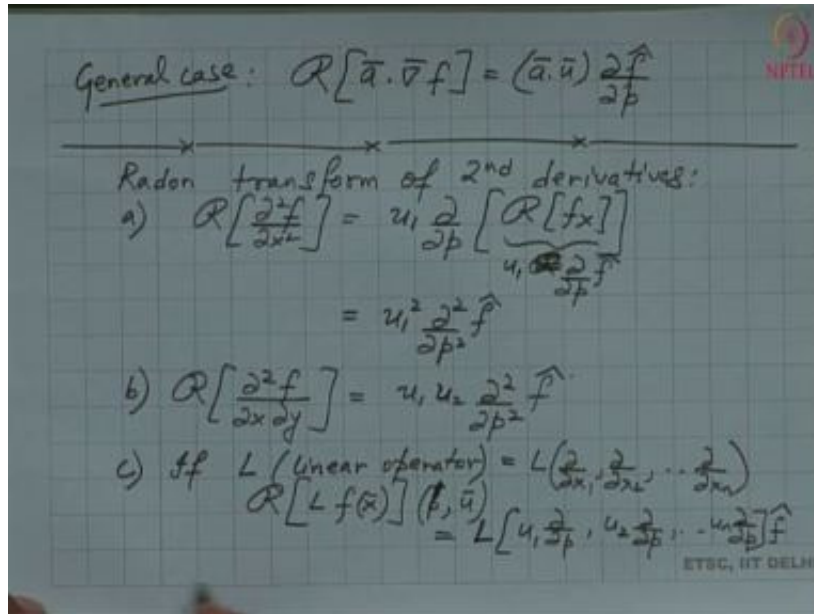 General case: R[ā.∇̄f] = (ā.ū) ∂f̂/∂p
NPTEL
Radon transform of 2nd derivatives:
a) R[∂²f/∂x²] = u₁ ∂/∂p [R[fx]]
u₁ ∂/∂p f̂
= u₁² ∂²/∂p² f̂
b) R[∂²f/∂x∂y] = u₁ u₂ ∂²/∂p² f̂
c) If L (linear operator) = L(∂/∂x₁, ∂/∂x₂, .. ∂/∂xₙ)
R[L f(x̄)](p, ū)
= L[u₁ ∂/∂p, u₂ ∂/∂p, .. uₙ ∂/∂p] f̂
ETSC, IIT DELHI